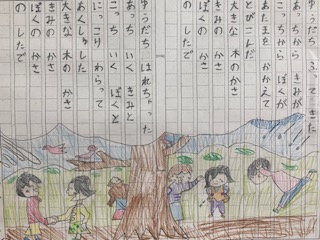 ゆうだち ふってきた
こっちから ぼくが
あたまを かかえて
とびこんだ
大きな 木の かさ
ぼくの かさ
の したで
ゆうだち はれちゃった
あっち いく きみと
こっち いく ぼくと
にっこり わらって
あくしゅした
大きな 木の かさ
きみの かさ
ぼくの かさ
の したで